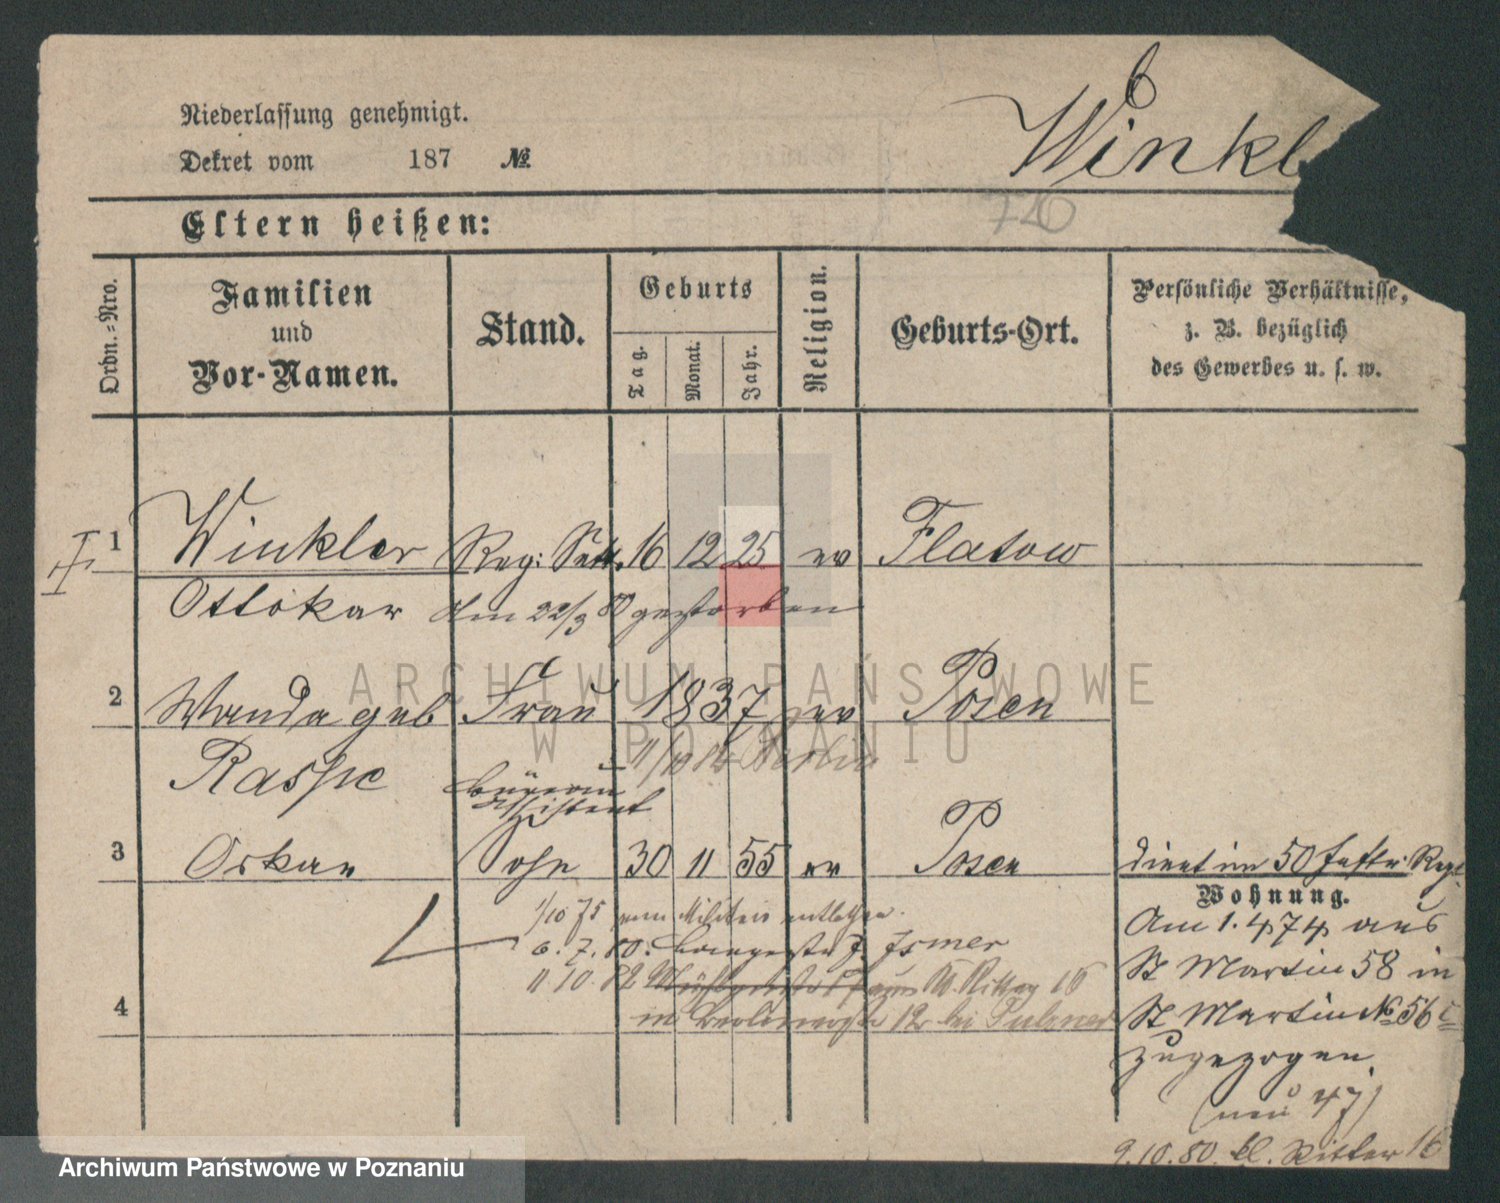 Niederlassung genehmigt.
Dekret vom 187 №
Winkl
720
Eltern heißen:
Ordn.-Nro.
Familien
und
Vor-Namen.
Stand.
Geburts
Tag.
Monat.
Jahr.
Religion.
Geburts-Ort.
Persönliche Verhältnisse,
z. B. bezüglich
des Gewerbes u. s. w.
1 Winkler Reg: Sekr. 16 12 25 ev Flatow
Ottokar Am 22/3 80 gestorben
2 Wanda geb Frau 1837 ev Posen
Raspe
11/10 82 Berlin
Büreau
Assistent
3 Oskar Sohn 30 11 55 ev Posen dient im 50 Inftr. Regt.
Wohnung.
1/10 75 vom Militair entlassen.
6. 7. 80.
11. 10. 82
in 12 bei
4
Am 1. 4 74 aus
St Martin 58 in
St Martin № 56 c
zugezogen.
(neu 47)
9.10.80. kl. Ritter 16
ARCHIWUM PAŃSTWOWE
W POZNANIU
Archiwum Państwowe w Poznaniu